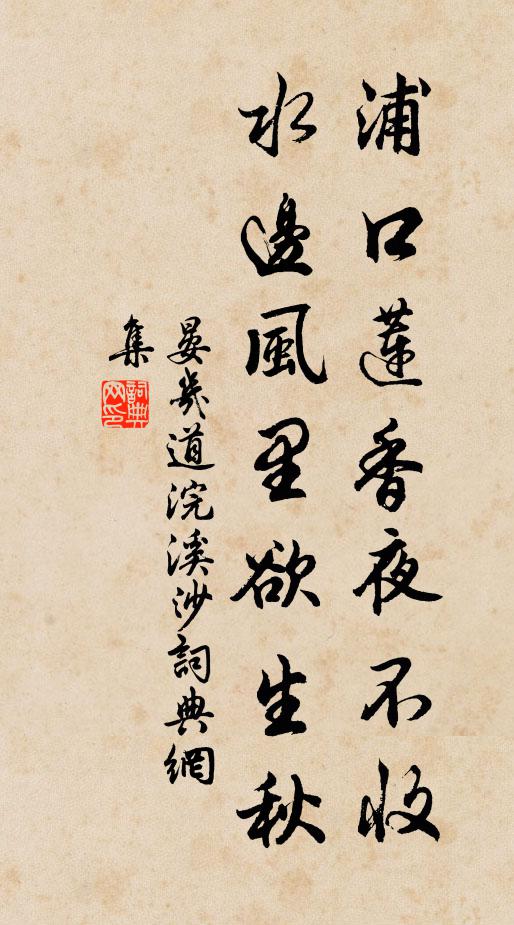 浦口蓮香夜不收
水邊風里欲生秋
晏幾道浣溪沙詞典網
集
詞典網印